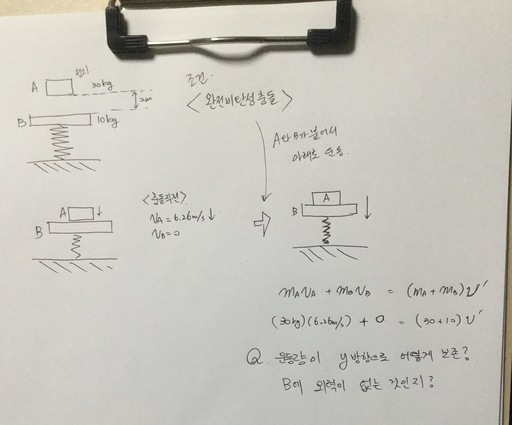 정지
A 30kg
2m
B 10kg
조건
<완전비탄성충돌>
A와 B가 붙어서
아래로 운동.
<충돌직전>
A
B
v_A = 6.26m/s ↓
v_B = 0
A
B
m_A v_A + m_B v_B = (m_A + m_B) v'
(30kg)(6.26m/s) + 0 = (30+10) v'
Q. 운동량이 y방향으로 어떻게 보존?
B에 외력이 없는 것인지?